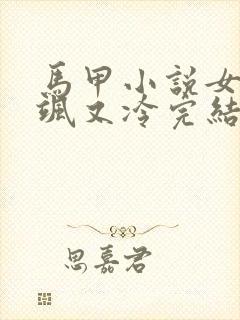 馬甲小說女
颯又冷完結
思嘉君